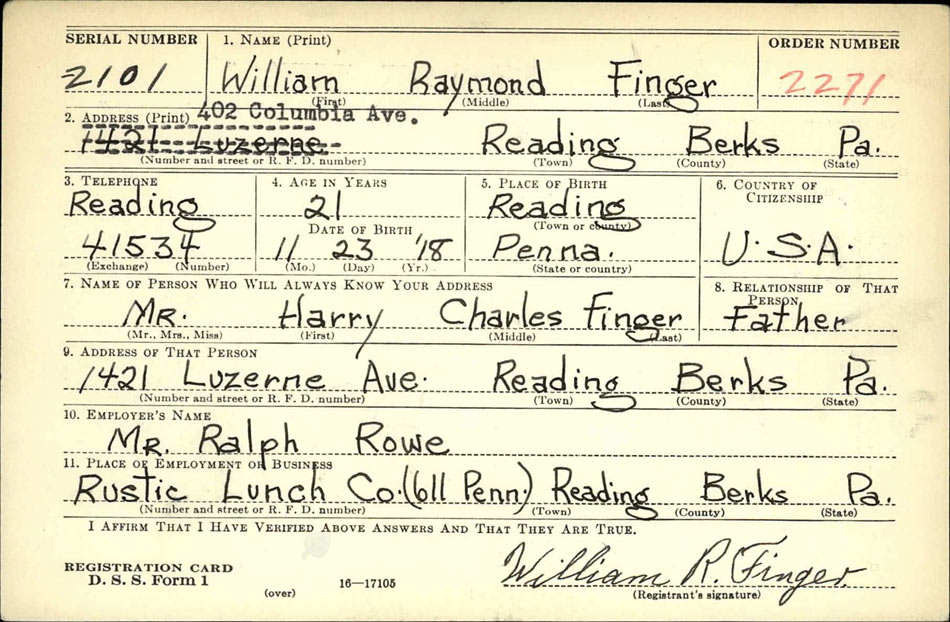 SERIAL NUMBER 1. NAME (Print) ORDER NUMBER
2101 William Raymond Finger 2271
(First) (Middle) (Last)
402 Columbia Ave.
2. ADDRESS (Print)
1421 Luzerne Reading Berks Pa.
(Number and street or R. F. D. number) (Town) (County) (State)
3. TELEPHONE 4. AGE IN YEARS 5. PLACE OF BIRTH 6. COUNTRY OF CITIZENSHIP
Reading 21 Reading
DATE OF BIRTH (Town or county)
41534 11 23 '18 Penna. U.S.A.
(Exchange) (Number) (Mo.) (Day) (Yr.) (State or country)
7. NAME OF PERSON WHO WILL ALWAYS KNOW YOUR ADDRESS 8. RELATIONSHIP OF THAT PERSON
Mr. Harry Charles Finger Father
(Mr., Mrs., Miss) (First) (Middle) (Last)
9. ADDRESS OF THAT PERSON
1421 Luzerne Ave. Reading Berks Pa.
(Number and street or R. F. D. number) (Town) (County) (State)
10. EMPLOYER'S NAME
Mr. Ralph Rowe
11. PLACE OF EMPLOYMENT OR BUSINESS
Rustic Lunch Co. (611 Penn.) Reading Berks Pa.
(Number and street or R. F. D. number) (Town) (County) (State)
I AFFIRM THAT I HAVE VERIFIED ABOVE ANSWERS AND THAT THEY ARE TRUE.
REGISTRATION CARD
D. S. S. Form 1 16—17105 William R. Finger
(over) (Registrant's signature)